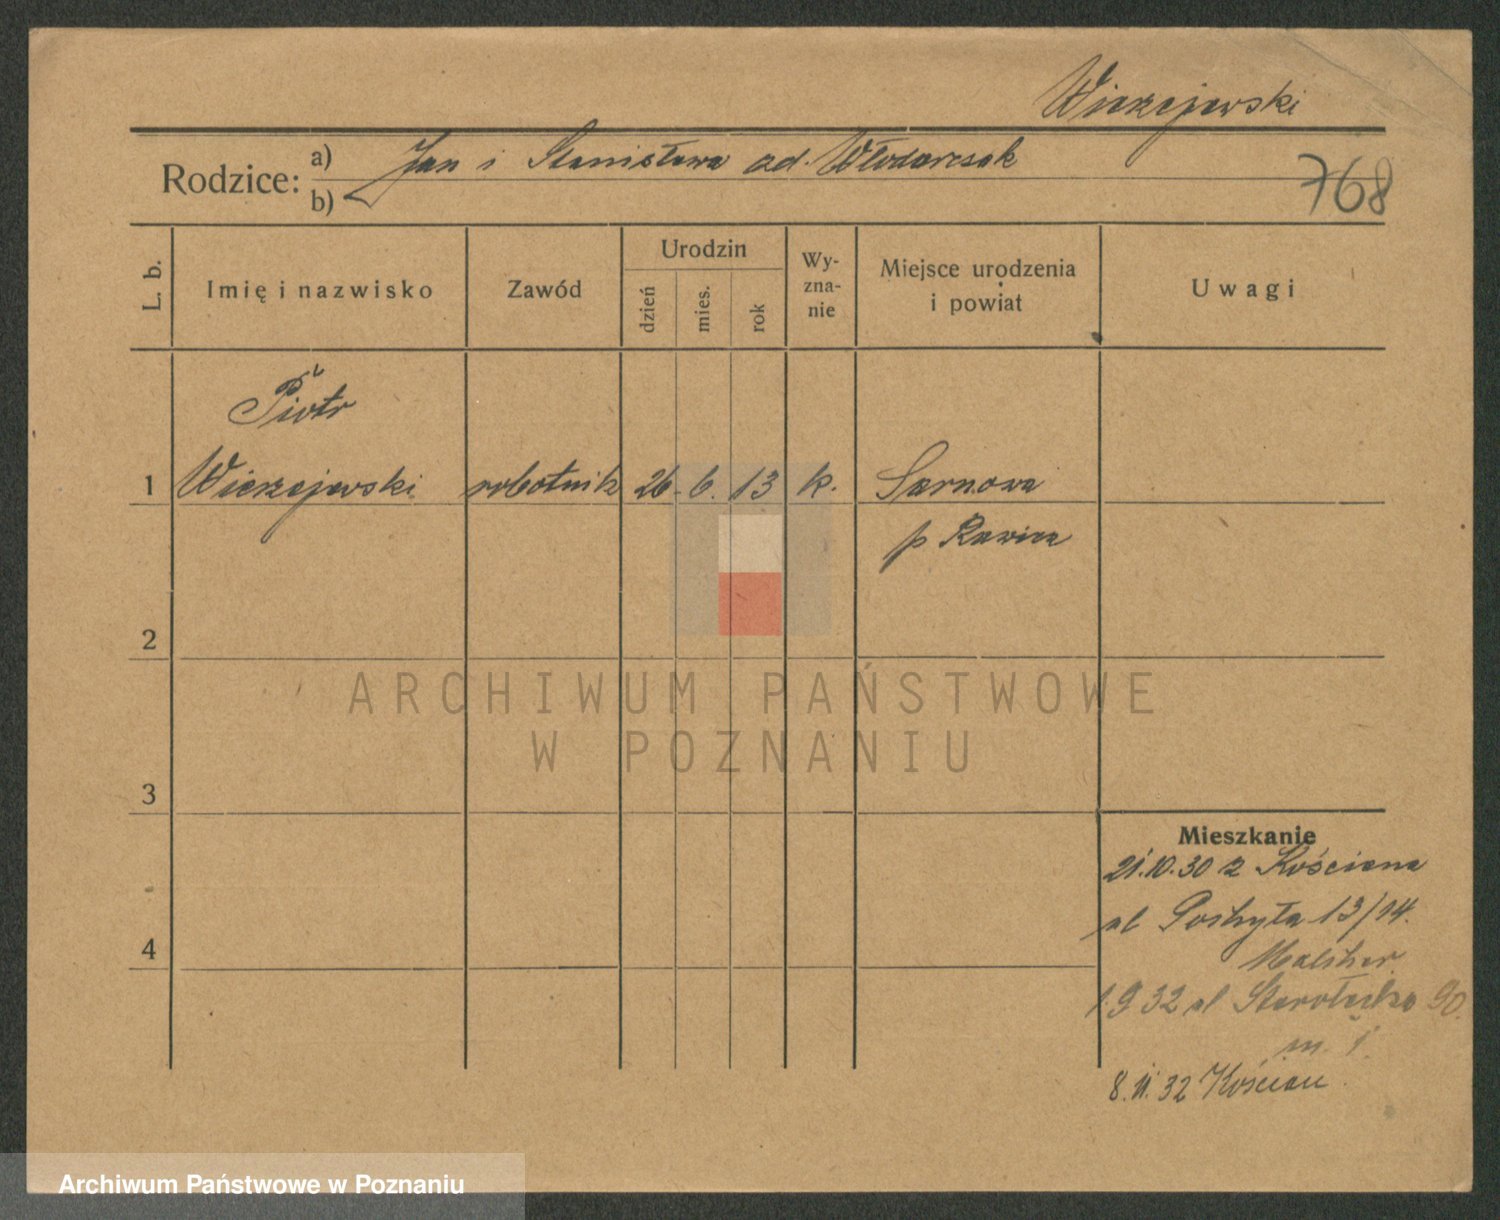 Wierzejewski
Rodzice: a) Jan i Stanisława od. Włodarczak
b)
768
L. b.
Imię i nazwisko
Zawód
Urodzin
dzień
mies.
rok
Wy-
zna-
nie
Miejsce urodzenia
i powiat
Uwagi
Piotr
1 Wierzejewski robotnik 26. 6. 13 k. Sarnowa
p Rawicz
2
ARCHIWUM PAŃSTWOWE
W POZNANIU
3
Mieszkanie
21.10.30 z Kościana
ul 13/14.
4
1 9 32 ul Starołęcka 90.
m. 1.
8. 11. 32 Kościan
Archiwum Państwowe w Poznaniu